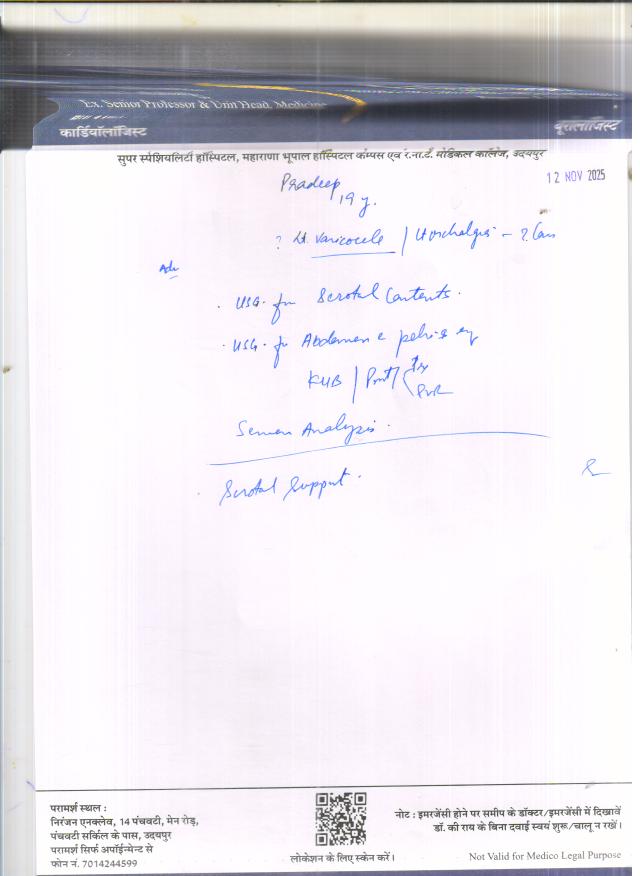 Ex. Senior Professor & Unit Head, Medicine
कार्डियोलॉजिस्ट
यूरोलॉजिस्ट
सुपर स्पेशियलिटी हॉस्पिटल, महाराणा भूपाल हॉस्पिटल कैम्पस एवं र.ना.टै. मेडिकल कॉलेज, उदयपुर
12 NOV 2025
Pradeep
19 y.
? Lt. Varicocele / Lt orchalgia - ?
Adv
. USG. for Scrotal Contents.
. USG. for Abdomen c pelvis
KUB / Prost /
PVR
Semen Analysis.
Scrotal Support.
परामर्श स्थल :
निरंजन एनक्लेव, 14 पंचवटी, मेन रोड़,
पंचवटी सर्किल के पास, उदयपुर
परामर्श सिर्फ अपॉईन्मेन्ट से
फोन नं. 7014244599
लोकेशन के लिए स्केन करें।
नोट : इमरजेंसी होने पर समीप के डॉक्टर/इमरजेंसी में दिखावें
डॉ. की राय के बिना दवाई स्वयं शुरू/चालू न रखें।
Not Valid for Medico Legal Purpose